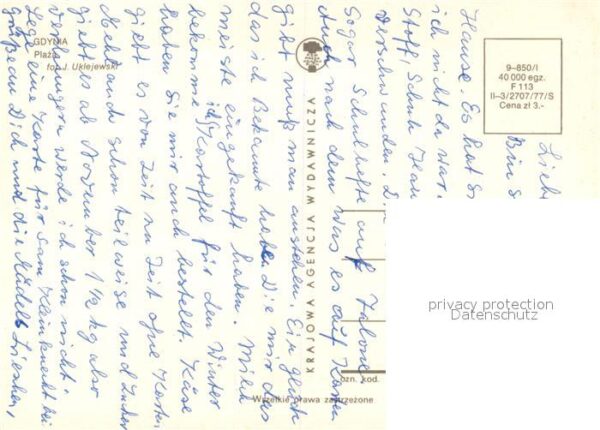 GDYNIA
Plaża
fot. J. Uklejewski
9–850/I
40 000 egz.
F 113
II–3/2707/77/S
Cena zł 3.-
KRAJOWA AGENCJA WYDAWNICZA
ozn. kod.
Wszelkie prawa zastrzeżone
privacy protection
Datenschutz
Bin
Hause. Es hat
ich nicht da war.
Stoff, Schuh
verschwunden.
Sogar Schulhefte auf
Auch nach dem was es auf Karten
gibt muß man anstehen. Ein glück
das ich Bekannte habe. Die mir das
meiste eingekauft haben. Milch
bekomme ich, Kartoffel für den Winter
haben Sie mir auch bestellt. Käse
gibt es von Zeit zu Zeit ohne Karten
Mehl auch schon teilweise und Zucker
gibt es ab November 1½ kg aber
verhungern werde ich schon nicht.
Lege eine Karte für Sam Kleinknecht bei
grüßen Dich und die Mädels